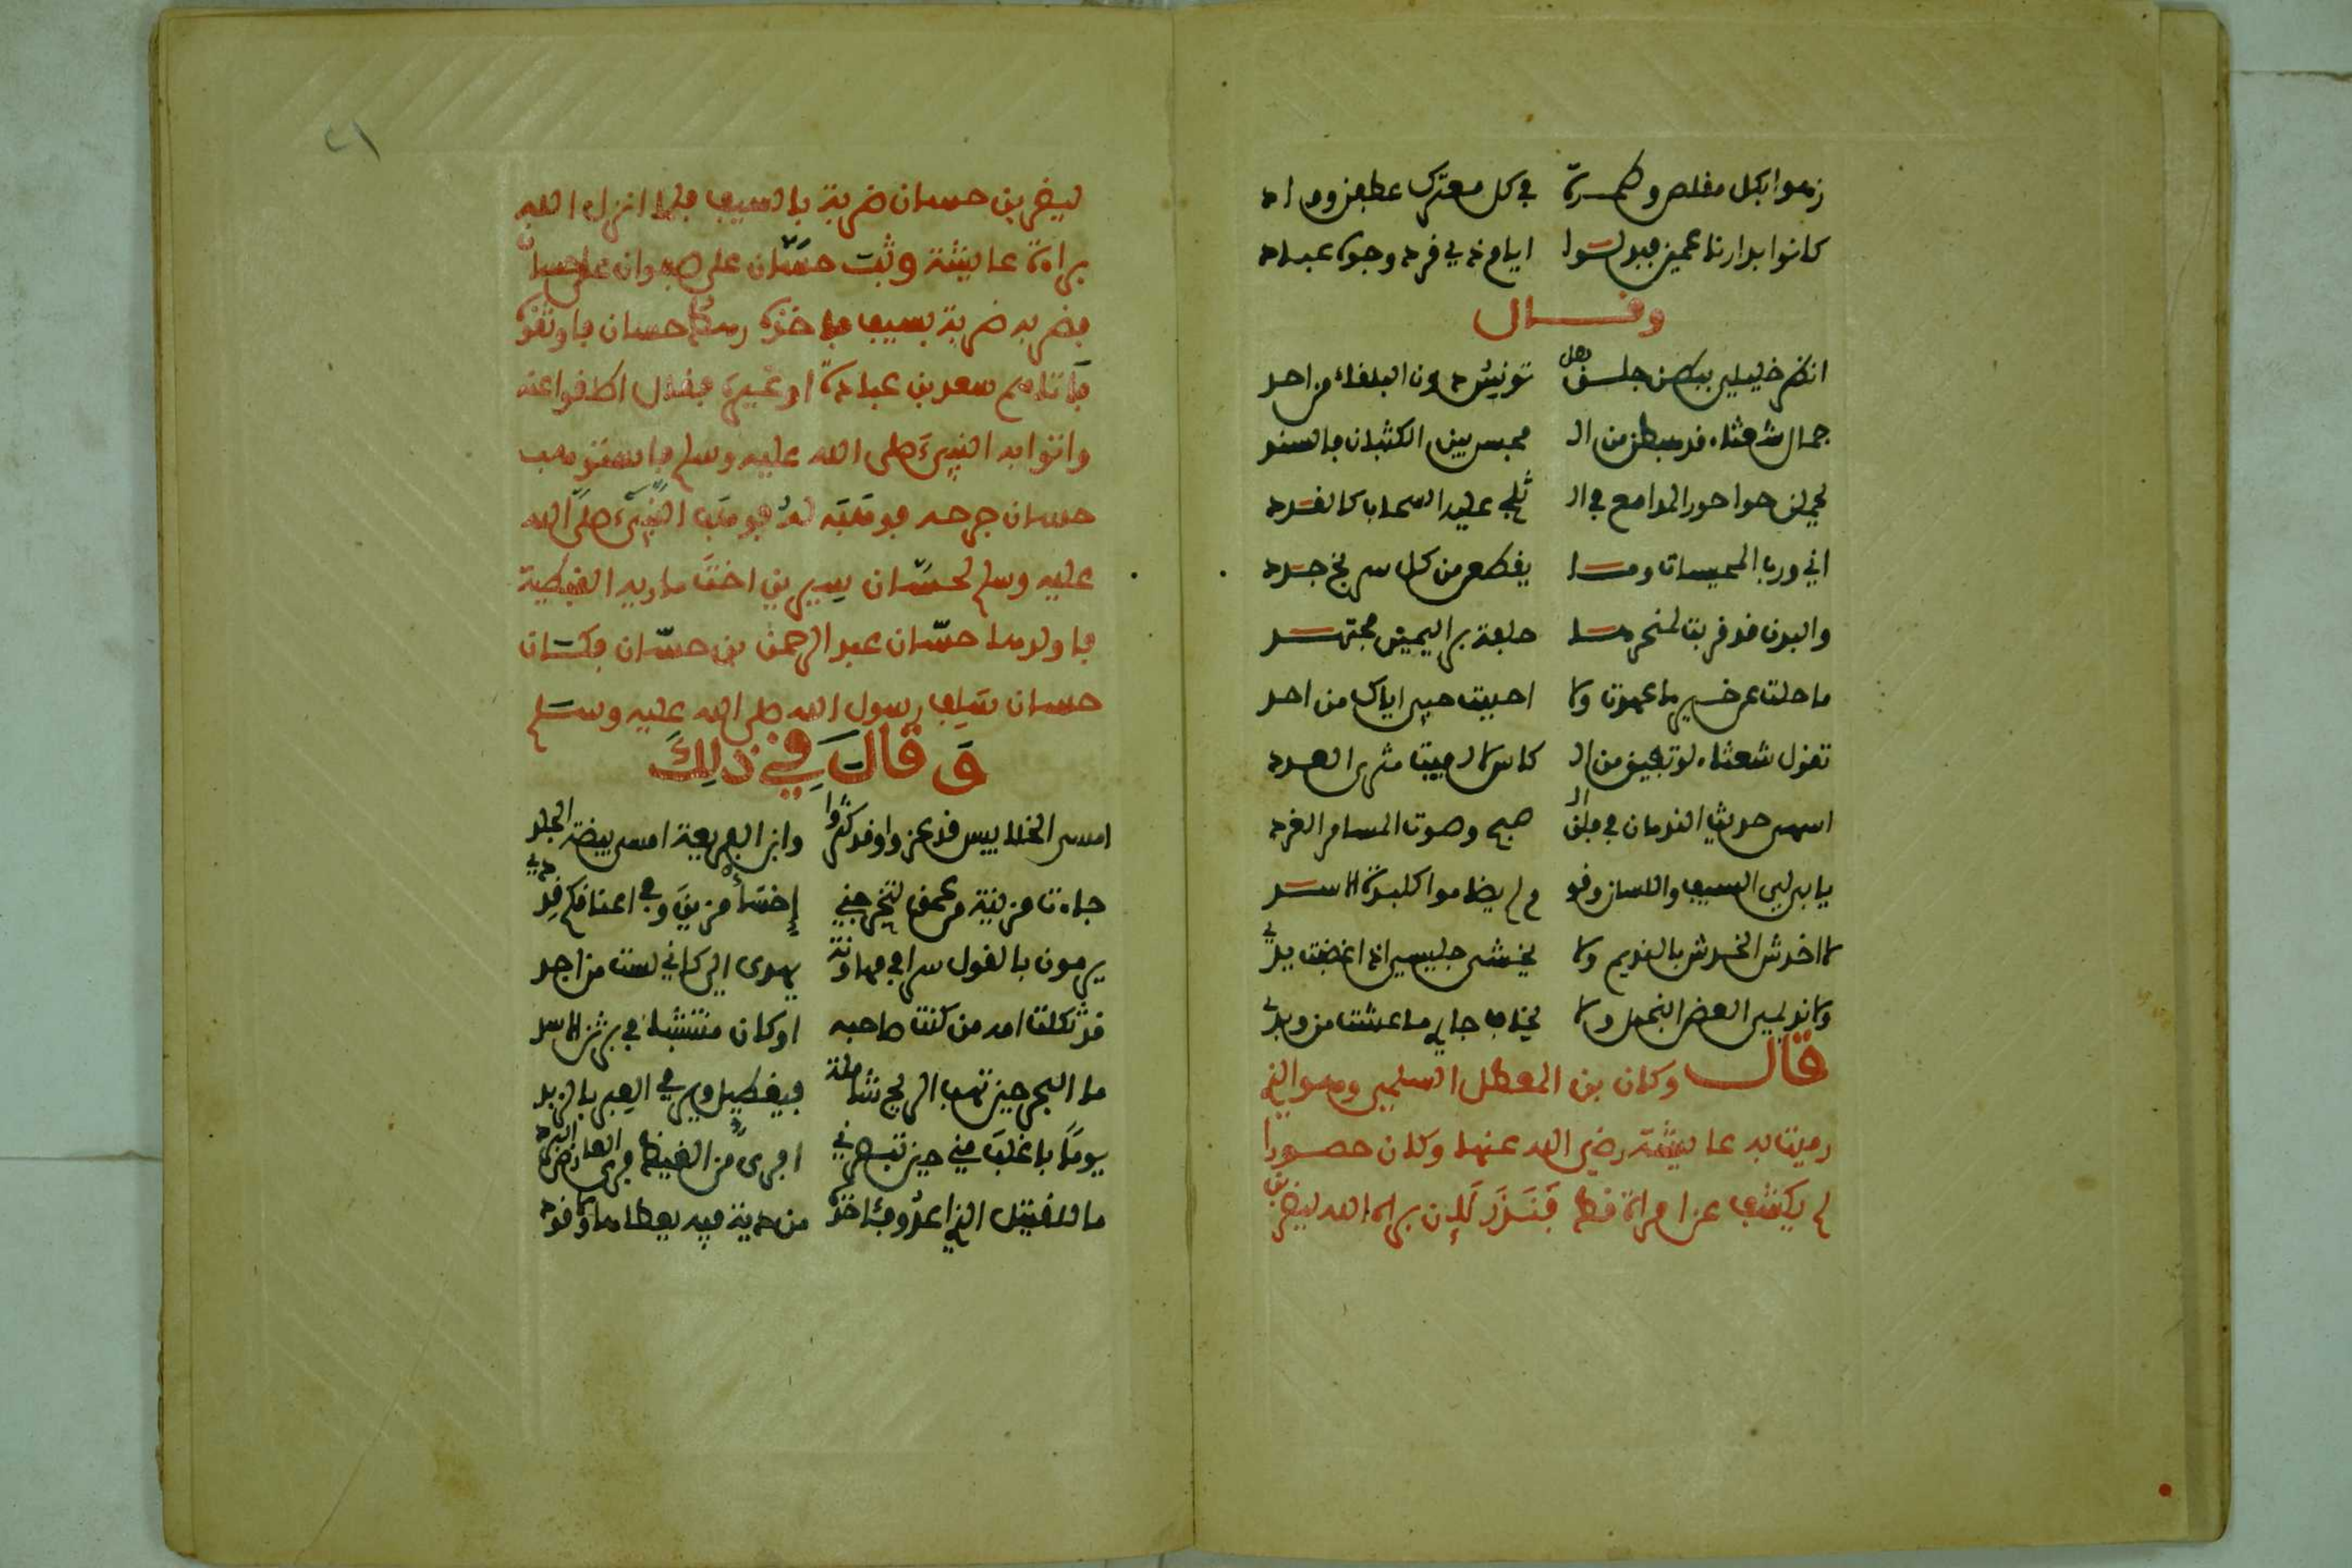 زهوا بكل مقلص وطمرة في كل معترك عطفن وواد
كانوا بدارنا عمين فبدلوا ايامهم في فرد وجوه عباد
وقال
انظر خليلي ببطن جلق هل تونس دون البلقاء من احد
جمال شعثاء قد هبطن من ال محبس بين الكثبان فالسند
يحملن حوا حور المدامع في ال ريط عليها السحاب كالقرد
اني ورب المخيسات وما يقطعن من كل سربخ جدد
والبدن قد قربت لمنحرها حلفة بر اليمين مجتهد
ما حلت عن خير ما عهدت ولا احببت حبي اياك من احد
تقول شعثاء لو تفيق من ال كاس لالفيت مثري العدد
اهوى حديث الندمان في فلق ال صبح وصوت المسامر الغرد
يابى لي السيف واللسان وقو م لم يضاموا كلبدة الاسد
لا اخدش الخدش بالنديم ولا يخشى جليسي اذا اغضبت يدي
ولا نديمي العض البخيل ولا يخاف جاري ما عشت من وبد
قال وكان بن المعطل السلمي وهو الذي
رميت به عايشة رضي الله عنها وكان حصورا
لم يكشف عن امراة قط فنذر لان براه الله ليضربن
ليضربن حسان ضربة بالسيف فلما انزل الله
براءة عايشة وثب حسان على صفوان على حسان
فضربه ضربة بسيف فاخذه رهط حسان فاوثقوه
فاتاهم سعد بن عبادة او غيره فقال اطلقوا عنه
واتوا به النبي صلى الله عليه وسلم فاستوهب
حسان جرحه فوهبه له فوهب النبي صلى الله
عليه وسلم لحسان سيرين اخت مارية القبطية
فاولدها حسان عبد الرحمن بن حسان فكان
حسان سلف رسول الله صلى الله عليه وسلم
وَ قَالَ فِي ذلِكَ
امسى الخلابيس قد عزوا وقد كثروا وابن الفريعة امسى بيضة البلد
جاءت مزينة من عمق لتخرجني إخسأ مزين وفي اعناقكم قددي
يرمون بالقول سرا في مهادنة يهدى الي كاني لست من احد
قد ثكلت امه من كنت صاحبه او كان منتشبا في برثن الاسد
ما البحر حين تهب الريح شاملة فيغطيل ويرمي العبر بالزبد
يوما باغلب مني حين تبصرني افري من الغيظ فري العارض البرد
ما للقتيل الذي اعدو فاخذه من دية فيه يعطاها ولا قود
٢١